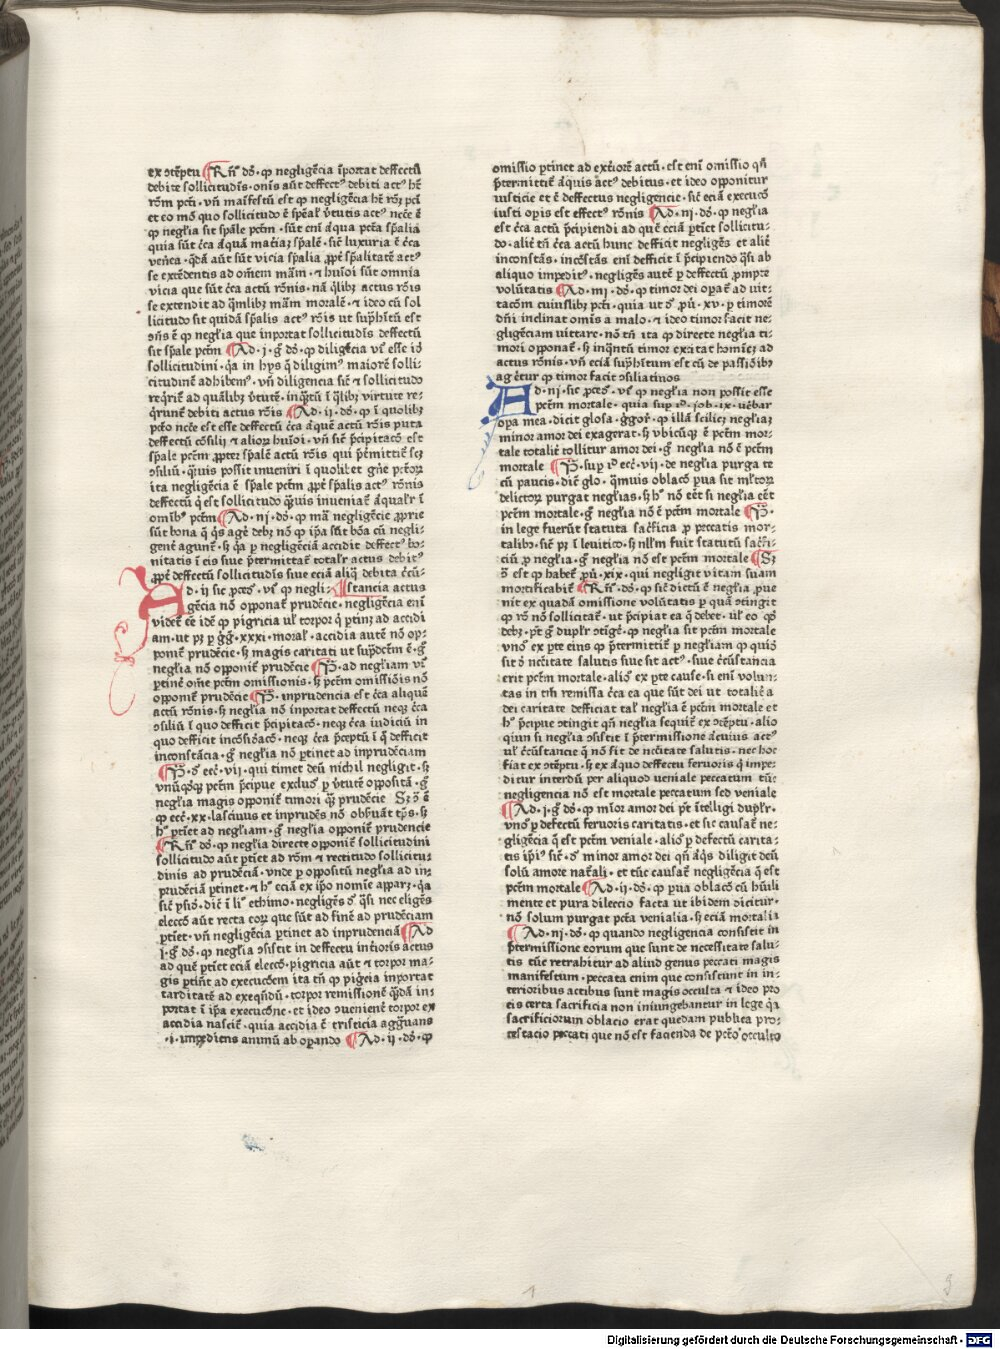 ex ɔtēptu Rn̄. dō. ꝙ negligēcia īportat deffectū
debite sollicitudīs. onīs aūt deffectꝰ debiti actꝰ hꝫ
rōm pcti. vn̄ maīfestū est ꝙ negligēcia hꝫ rōꝫ pcī
et eo mō quo sollicitudo ē spēalꝭ v̄tutis actꝰ nccē ē
ꝙ neglīa sit spāle pctm. sūt eni āqua pctā spālia
quia sūt c̄ca āquā mat̄iaꝫ spālē. sic̄ luxuria ē c̄ca
ven̄ea. qdā aūt sūt vicia spālia ꝓpt̄ spālitatē actꝰ
se extēdentis ad om̄em mām. ⁊ huīoi sūt omnia
vicia que sūt c̄ca actū rōnis. nā qlibꝫ actus rōis
se extendit ad qmlibꝫ mām moralē. ⁊ ideo cū sol
licitudo sit quidā spālis actꝰ rōis ut sup̄hītū est
ↄn̄s ē ꝙ neglīa que inportat sollicitudīs deffectū
sit spāle pctm Ad. j. g̊ dō. ꝙ diligēcia vr̄ esse iō
sollicitudini. qa in hys q̄ diligimꝰ maiorē solli-
citudinē adhibemꝰ. vn̄ diligencia sic̄ ⁊ sollicitudo
reqrīē ad qualibꝫ v̄tutē. inqtū ī qlibꝫ virtute re-
qrune debiti actus rōis Ad. ii. dō. ꝙ ī quolibꝫ
pctō nccē est esse deffectū c̄ca āquē actū rōis puta
deffectū cōsilij ⁊ alioꝝ huīoi. vn̄ sic̄ p̄cipitacō est
spāle pctm ꝓpter spālē actū rōis qui p̄mittit̄ scꝫ
ↄsiliū. quis possit inueniri ī quolibet gn̄e pctōꝝ
ita negligēcia ē spāle pctm ꝓpt̄ spālis actꝰ rōnis
deffectū q est sollicitudo quis inueniat̄ āqualꝭ ī
omībꝰ pctīs Ad. iij. dō. ꝙ mā negligēcie ꝓprie
sūt bona q̄ qs age debꝫ nō ꝙ ip̄a sīt bōa cū negli-
gent̄ agunt̄. sꝫ qa ꝑ negligēciā accidit deffectꝰ bo-
nitatis ī eis siue p̄termittat̄ totalꝭ actus debitꝰ
ꝓpt̄ deffectū sollicitudīs siue eciā aliq̄ debita c̄cū-
Ad. ij sic ꝓcedꝰ. vr̄ ꝙ negli- stancia actus
gēcia nō opponat̄ prudēcie. negligēcia eni
videt̄ ēē idē ꝙ pigricia ul̄ torpor q̄ ptinꝫ ad accidi
am. ut pꝫ ꝑ gg̊. xxxi. moral̄. accidia autē nō op-
ponit̄ prudēcie. sꝫ magis caritati ut sup̄dcm̄ ē. g̊
neglīa nō opponit̄ prudēcie P̄. ad negliam vr̄
ptinē om̄e pctm omissionis. sꝫ pctm omissiōis nō
opponit̄ prudēcie P̄. inprudencia est c̄ca aliquē
actū rōnis. sꝫ neglīa nō inportat deffectū neqꝫ c̄ca
ↄsiliū ī quo defficit p̄cipitacō. neqꝫ c̄ca iudiciū in
quo defficit incōsiↄacō. neqꝫ c̄ca p̄ceptū ī q̊ defficit
inconstācia. g̊ neglīa nō ꝑtinet ad inprudēciam
P̄. d̄ ecc̄. vij. qui timet deū nichil negligit. sꝫ
vnūqdqꝫ pctm p̄cipue excludꝰ ꝑ v̄tutē oppositā. g̊
neglīa magis opponit̄ timori qꝫ prudēcie Sꝫ ↄ̄ ē
ꝙ ecc̄. xx. lasciuus et inprudēs nō obƀuāt tp̄s. sꝫ
hꝰ ꝑtiet ad negliam. g̊ neglīa opponit̄ prudencie
Rn̄. dō. ꝙ neglīa directe opponit̄ sollicitudini
sollicitudo aūt ꝑtiet ad rōm ⁊ rectitudo sollicitu-
dinis ad prudēciā. vnde ꝑ oppositū neglīa ad in-
prudēciā ꝑtinet. ⁊ hꝰ eciā ex ip̄o nomīe apparꝫ. qa
sic̄ ysidꝰ. dic̄ ī liꝰ ethimo. negligēs dꝰ qsi nec eligēs
eleccō aūt recta eoꝝ que sūt ad finē ad prudēciam
ꝑtiet. vn̄ negligēcia ꝑtinet ad inprudenciā Ad
j. g̊ dō. ꝙ neglīa ↄsistit in deffectu int̄ioris actus
ad quē ꝑtiet eciā eleccō. pigricia aūt ⁊ torpor ma-
gis ꝑtin̄t ad execuc̄oem ita tn̄ ꝙ pig̊cia inportat
tarditatē ad exeqn̄dū. torpor remissionē qdā in-
portat ī ip̄a execuc̄one. et ideo ↄuenient̄ torpor ex
accidia nascit̄. quia accidia ē tristicia agg̊uans
.i. impediens animū ab oꝑando Ad. ii. dō. ꝙ
omissio ꝑtinet ad exteriorē actū. est eni omissio qn̄
p̄termittit̄ āquis actꝰ debitus. et ideo opponitur
iusticie et ē deffectus negligencie. sic̄ eciā execucō
iusti oꝑis est effectꝰ rōnis Ad. iij. dō. ꝙ neglīa
est c̄ca actū p̄cipiendi ad quē eciā ꝑtiet sollicitu-
do. alit̄ tn̄ c̄ca actū hunc defficit negligēs et alit̄
inconstās. incōstās eni defficit ī p̄cipiendo qsi ab
aliquo impeditꝰ. negligēs autē ꝑ deffectū ꝓmpte
volūtatis Ad. iiij. dō. ꝙ timor dei oꝑat̄ ad vit-
tacōm cuiuslibꝫ pcti. quia ut dꝰ ꝓū. xv. ꝑ timorē
dn̄i inclinat omīs a malo. ⁊ ideo timor facit ne-
gligēciam vittare. nō tn̄ ita ꝙ directe neglīa ti-
mori opponat̄. sꝫ inqntū timor excitat hominēꝫ ad
actus rōnis. vn̄ eciā suphītum est cū de passiōibꝰ
ag̊et̄ur ꝙ timor facit ↄsiliatiuos
Ad. iij. sic ꝓcedꝰ. vr̄ ꝙ neglīa non possit esse
pctm mortale. quia suꝑ iꝰ. iob. ix. u̇ebar
oꝑa mea. dicit glosa. g̊gorꝰ. ꝙ illā scilicꝫ neglīaꝫ
minor amor dei exagerat. sꝫ vbicūqꝫ ē pctm mor-
tale totalit̄ tollitur amor dei. g̊ neglīa nō ē pctm
mortale P̄. suꝑ iꝰ ecc̄. vij. de neglīa purga te
cū paucis. dic̄ glo. qmuis oblacō ꝑua sit mltoꝝ
delictoꝝ purgat neglīas. sꝫ hꝰ nō eēt si neglīa eēt
pctm mortale. g̊ neglīa nō ē pctm mortale P̄.
in lege fuerūt statuta sac̄ficia ꝓ peccatis mor-
talibꝰ. sic̄ pꝫ ī leuitico. sꝫ nll'm fuit statutū sac̄fi-
ciū ꝓ neglīa. g̊ neglīa nō est pctm mortale Sꝫ
ↄ̄ est ꝙ habet̄ ꝓū. xix. qui negligit vitam suam
mortificabit̄ Rn̄. dō. ꝙ sic̄ dictū ē neglīa ꝓue
nit ex quadā omissione volūtatis ꝑ quā ↄtingit
ꝙ rō nō sollicitat̄. ut p̄cipiat ea q̄ debet. ul̄ eo mō
debꝫ. pt̄ g̊ duplꝭ ↄtige. ꝙ neglīa sit pctm mortale
vnoꝰ ex ꝑte eius ꝙ p̄termittit̄ ꝑ negliam ꝙ quidē
sit ↄ̄ nc̄itate salutis siue sit actꝰ. siue c̄cūstancia
erit pctm mortale. alioꝰ ex ꝑte cause. si eni volun-
tas in tm̄ remissa c̄ca ea que sūt dei ut totalit̄ a
dei caritate defficiat tal̄ neglīa ē pctm mortale et
hꝰ p̄cipue ↄtingit qn̄ neglīa sequit̄ ex ↄtēptu. alio
quin si neglīa ↄsistit ī p̄termissione ācuius actꝰ
ul̄ c̄cūstancie q̄ nō sit de nc̄itate salutis. nec hoc
fiat ex ↄtēptu. sꝫ ex āquo deffectu feruoris q̄ impe-
ditur interdū ꝑ aliquod ueniale peccatum tūc
negligencia nō est mortale peccatum sed veniale
Ad. j. g̊ dō. ꝙ mīor amor dei pt̄ ītelligi duplꝭ.
vnoꝰ ꝑ defectū feruoris caritatis. et sic causat̄ ne-
gligēcia q̄ est pctm veniale. alioꝰ ꝑ defectū carita-
tis ip̄iꝰ sic̄. dꝰ minor amor dei qn̄ aqs diligit deū
solū amore nat̄ali. et tūc causat̄ negligēcia q̄ est
pctm mortale Ad. ij. dō. ꝙ ꝑua oblacō cū hūili
mente et pura dileccio facta ut ibidem dicitur.
nō solum purgat pctā venialia. sꝫ eciā mortalia
Ad. iij. dō. ꝙ quando negligencia consistit in
p̄termissione eorum que sunt de necessitate salu-
tis tūc retrahitur ad aliud genus peccati magis
manifestum. peccata enim que consistunt in in-
terioribus actibus sunt magis occulta ⁊ ideo pro
eis certa sacrificia non iniungebantur in lege qa
sacrificiorum oblacio erat quedam publica pro-
testacio peccati que nō est facienda de pctō occulto
Digitalisierung gefördert durch die Deutsche Forschungsgemeinschaft - DFG